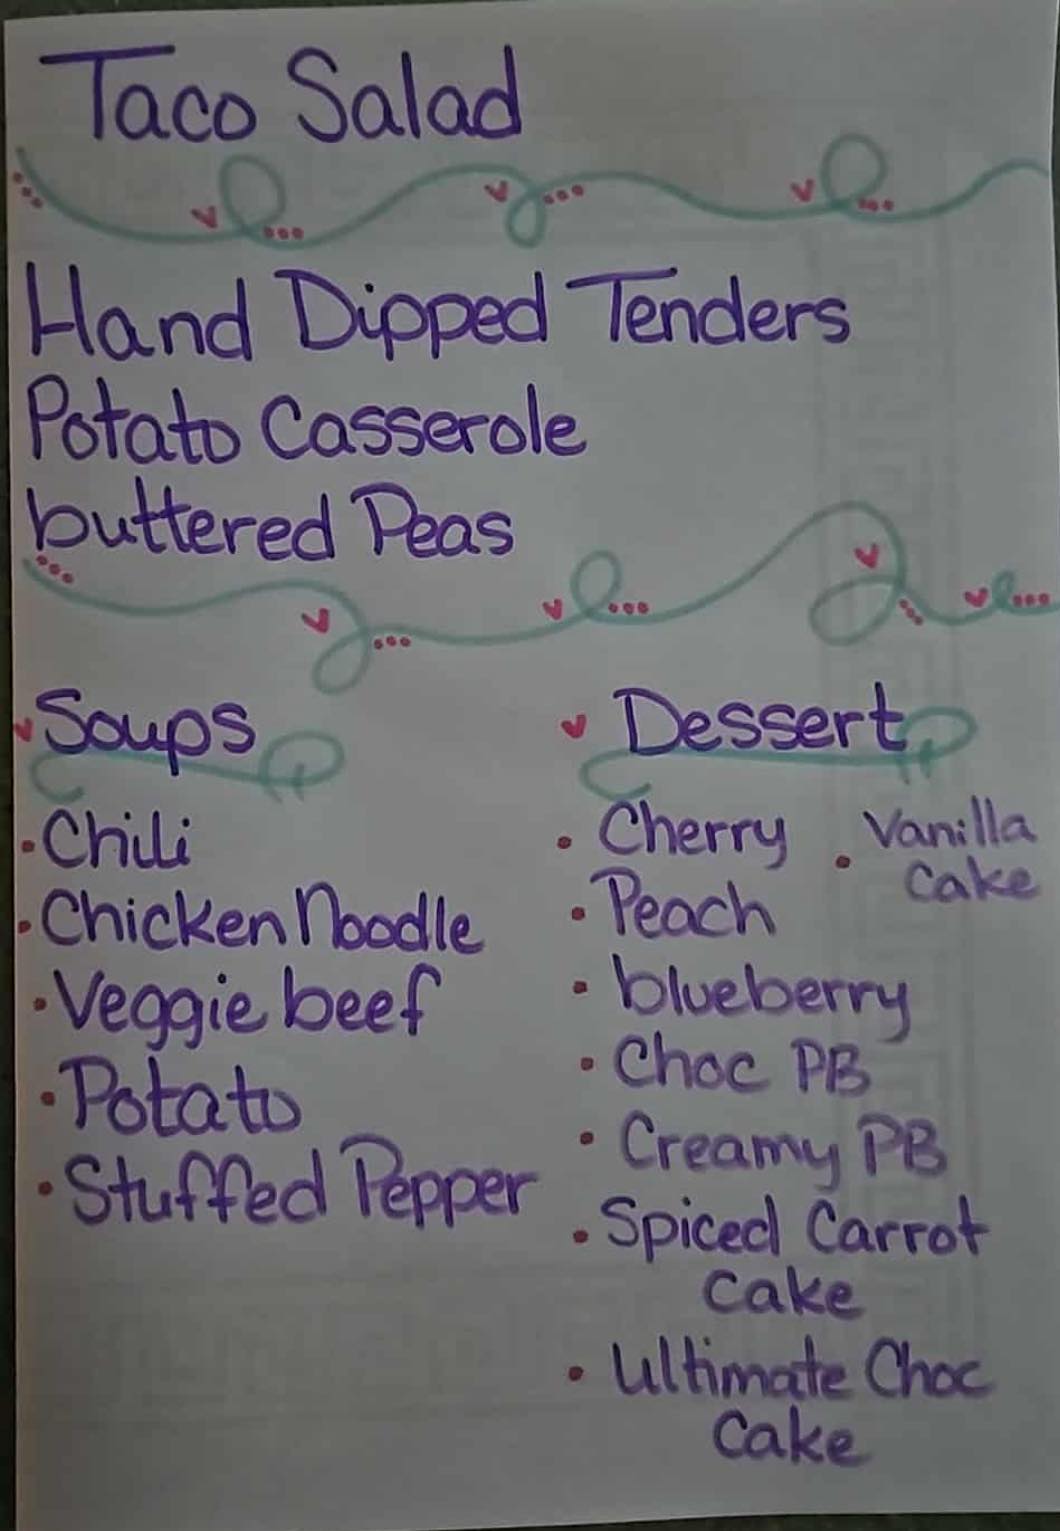 Taco Salad
Hand Dipped Tenders
Potato Casserole
buttered Peas
Soups
• Chili
• Chicken Noodle
• Veggie beef
• Potato
• Stuffed Pepper
Dessert
• Cherry
• Peach
• blueberry
• Choc PB
• Creamy PB
• Spiced Carrot
Cake
• Ultimate Choc
Cake
• Vanilla
Cake